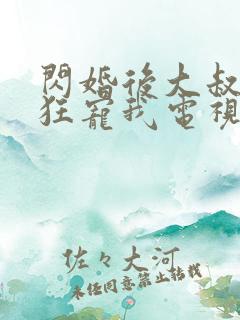 閃婚後大叔
狂寵我電視
佐々大河
未任同意禁止转载